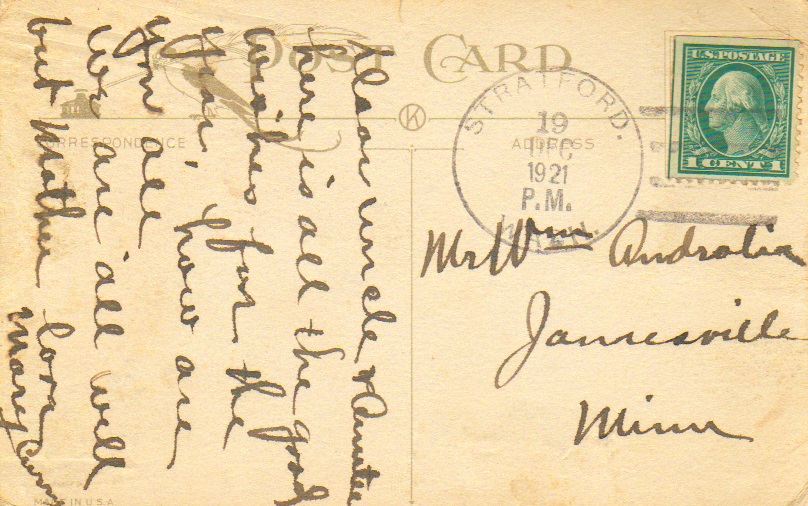 POST CARD
CORRESPONDENCE
ADDRESS
U.S. POSTAGE
1 CENT 1
STRATFORD.
19
DEC
1921
P.M.
Mr Wm Andralia
Janesville
Minn
Dear uncle &
here is all the good
wishes for the
year, how are
you all
We are all well
but Mother love
Mary
MADE IN U.S.A.